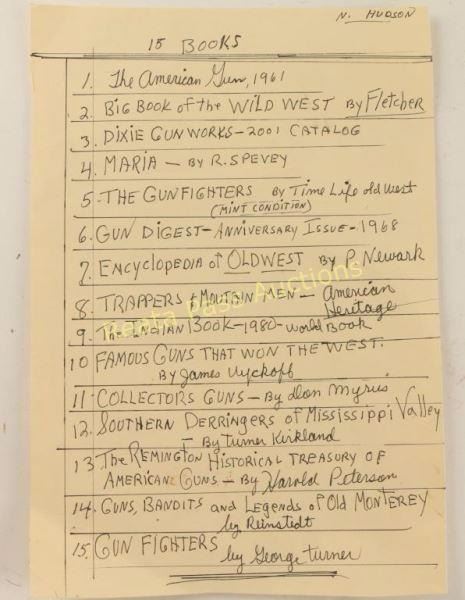 N. HUDSON
15 BOOKS
1. The American Gun, 1961
2. BIG BOOK of the WILD WEST By Fletcher
3. DIXIE GUN WORKS-2001 CATALOG
4. MARIA - BY R. SPEVEY
5-THE GUNFIGHTERS by Time Life old West
(MINT CONDITION)
6. GUN DIGEST-ANNIVERSARY ISSUE-1968
7. ENCYCLOPEDIA of OLDWEST By P. Newark
8. TRAPPERS & MOUTAIN MEN - American
Heritage
9. The INDIAN BOOK-1980-World Book
10 FAMOUS GUNS THAT WON THE WEST.
By James Wyckoff
11-COLLECTORS GUNS - By Don Myrus
12. SOUTHERN DERRINGERS of Mississippi Valley
- By Turner Kirkland
13. The REMINGTON HISTORICAL TREASURY OF
AMERICAN GUNS - By Harold Peterson
14. GUNS, BANDITS and Legends of Old MONTEREY
by Reinstedt
15. GUN FIGHTERS
by George Turner
Penta Pass Auctions